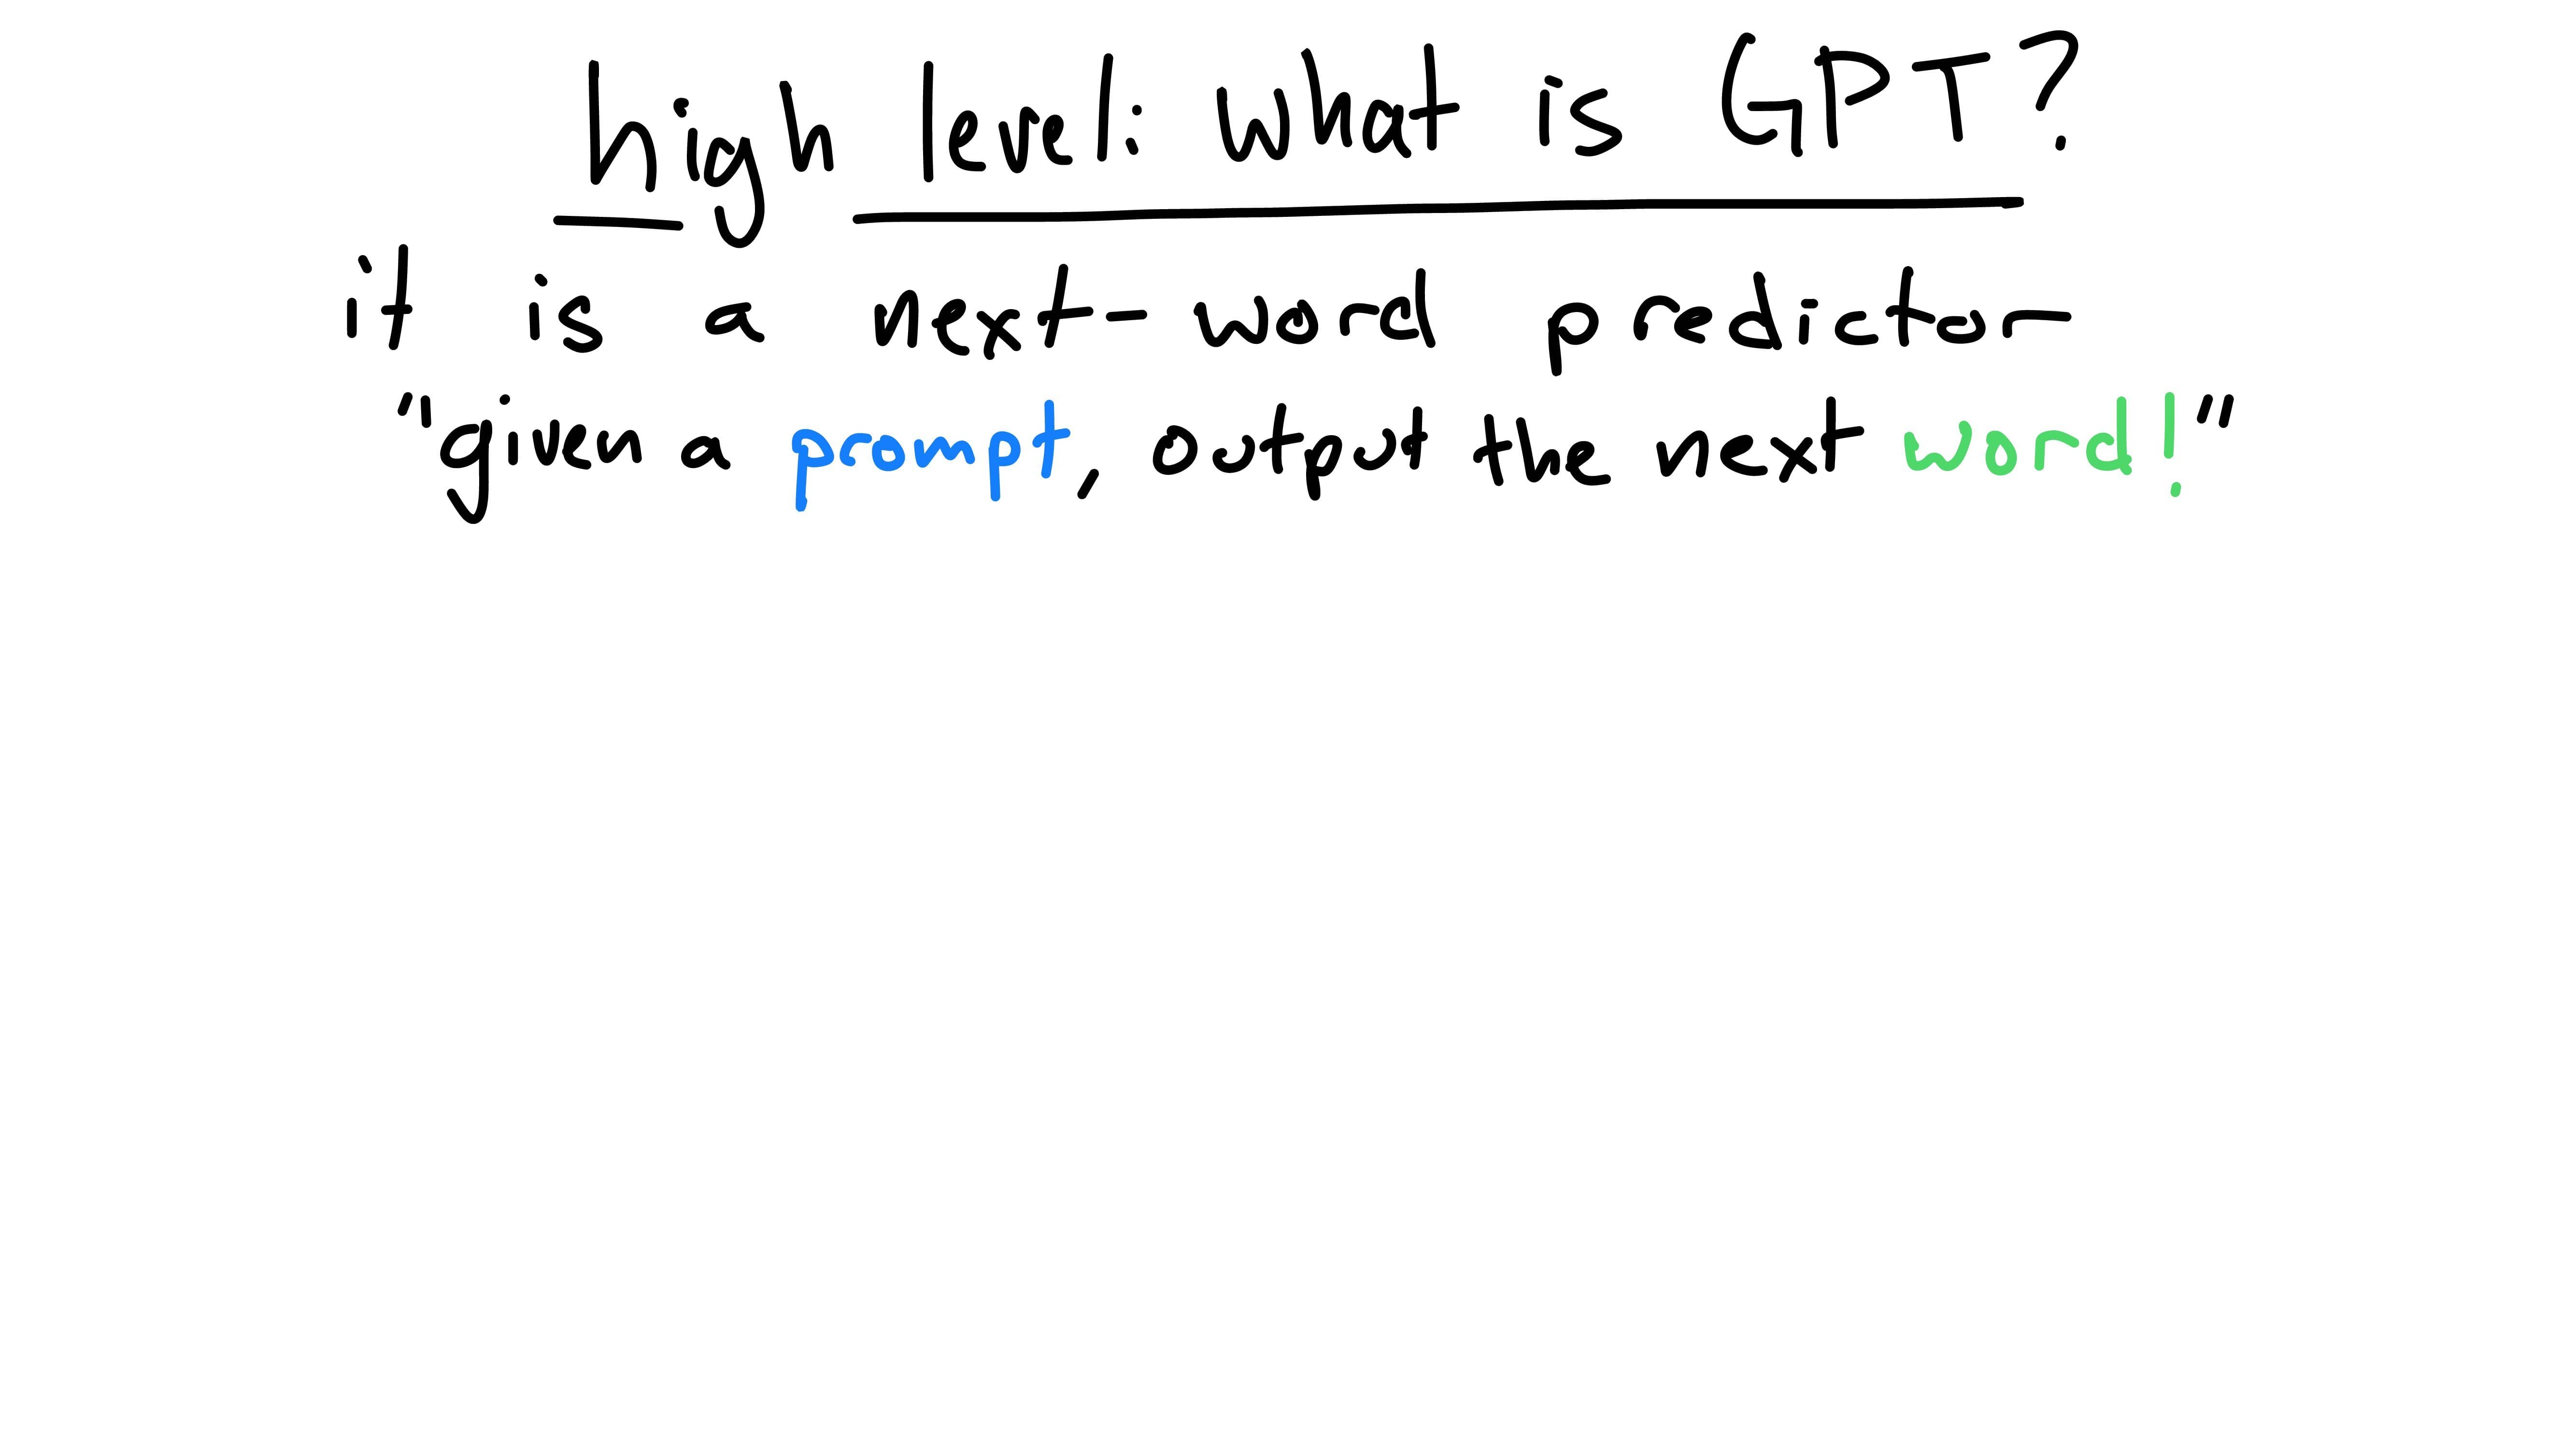 high level: what is GPT?
it is a next-word predictor
"given a prompt, output the next word!"